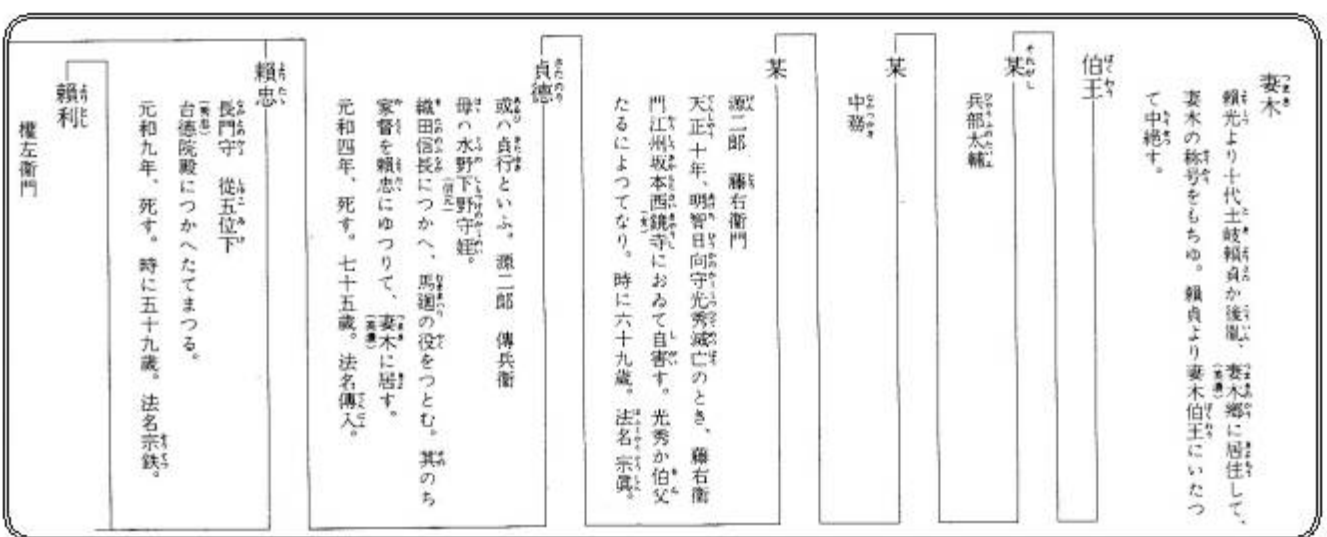 妻木
頼光より十代土岐頼貞か後胤、妻木郷に居住して、
妻木の称号をもちゆ。頼貞より妻木伯王にいたつ
て中絶す。
伯王
某
兵部太輔
某
中務
某
源二郎　藤右衛門
天正十年、明智日向守光秀滅亡のとき、藤右衛
門江州坂本西鏡寺におゐて自害す。光秀か伯父
たるによつてなり。時に六十九歳。法名宗眞。
貞德
或ハ貞行といふ。源二郎　傳兵衞
母ハ水野下野守姪。
織田信長につかへ、馬廻の役をつとむ。其のち
家督を頼忠にゆつりて、妻木に居す。
元和四年、死す。七十五歳。法名傳入。
頼忠
長門守　從五位下
台德院殿につかへたてまつる。
元和九年、死す。時に五十九歳。法名宗鉄。
頼利
權左衞門